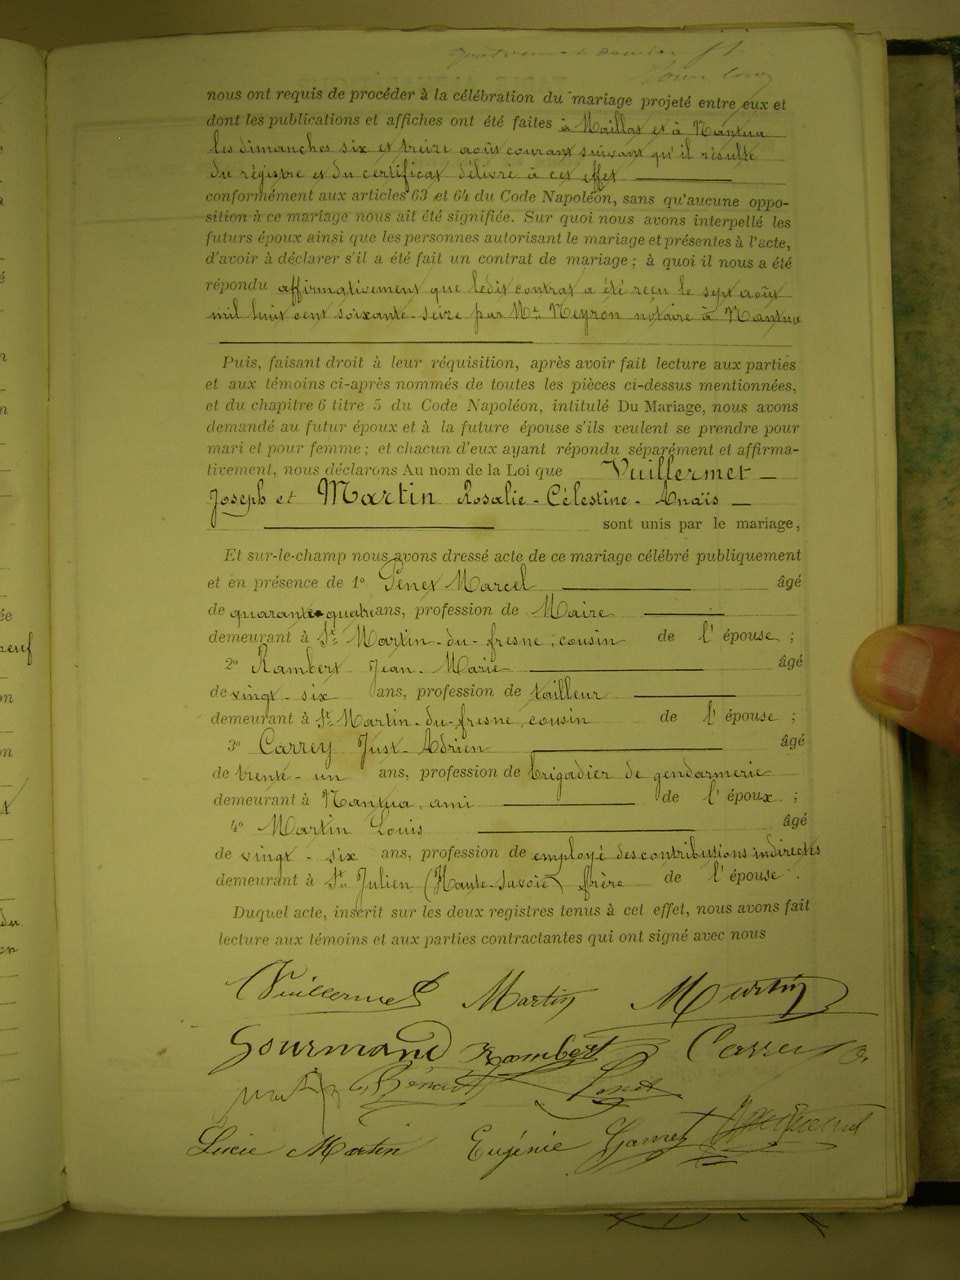 nous ont requis de procéder à la célébration du mariage projeté entre eux et
dont les publications et affiches ont été faites à Maillat et à Nantua
les dimanches six et treize août courant suivant qu'il résulte
du régistre et du certificat délivré à cet effet
conformément aux articles 63 et 64 du Code Napoléon, sans qu'aucune oppo-
sition à ce mariage nous ait été signifiée. Sur quoi nous avons interpellé les
futurs époux ainsi que les personnes autorisant le mariage et présentes à l'acte,
d'avoir à déclarer s'il a été fait un contrat de mariage ; à quoi il nous a été
répondu affirmativement que ledit contrat a été reçu le sept août
mil huit cent soixante-seize par Me Neyron notaire à Nantua
Puis, faisant droit à leur réquisition, après avoir fait lecture aux parties
et aux témoins ci-après nommés de toutes les pièces ci-dessus mentionnées,
et du chapitre 6 titre 5 du Code Napoléon, intitulé Du Mariage, nous avons
demandé au futur époux et à la future épouse s'ils veulent se prendre pour
mari et pour femme ; et chacun d'eux ayant répondu séparément et affirma-
tivement, nous déclarons Au nom de la Loi que Vuillermet
Joseph et Martin Rosalie-Célestine-Anaïs
sont unis par le mariage,
Et sur-le-champ nous avons dressé acte de ce mariage célébré publiquement
et en présence de 1o Penet Marcel âgé
de quarante-quatre ans, profession de Maire
demeurant à St Martin-du-fresne, cousin de l'épouse ;
2o Rambert Jean-Marie âgé
de vingt-six ans, profession de tailleur
demeurant à St Martin-du-fresne, cousin de l'épouse ;
3o Carrey Just-Adrien âgé
de trente-un ans, profession de brigadier de gendarmerie
demeurant à Nantua, ami de l'époux ;
4o Martin Louis âgé
de vingt-six ans, profession de employé des contributions indirectes
demeurant à St Julien (Haute-Savoie) frère de l'épouse.
Duquel acte, inscrit sur les deux registres tenus à cet effet, nous avons fait
lecture aux témoins et aux parties contractantes qui ont signé avec nous
Vuillermet Martin Martin
Gourmand Rambert Carrey
Bénoit Penet
Lucie Martin Eugénie